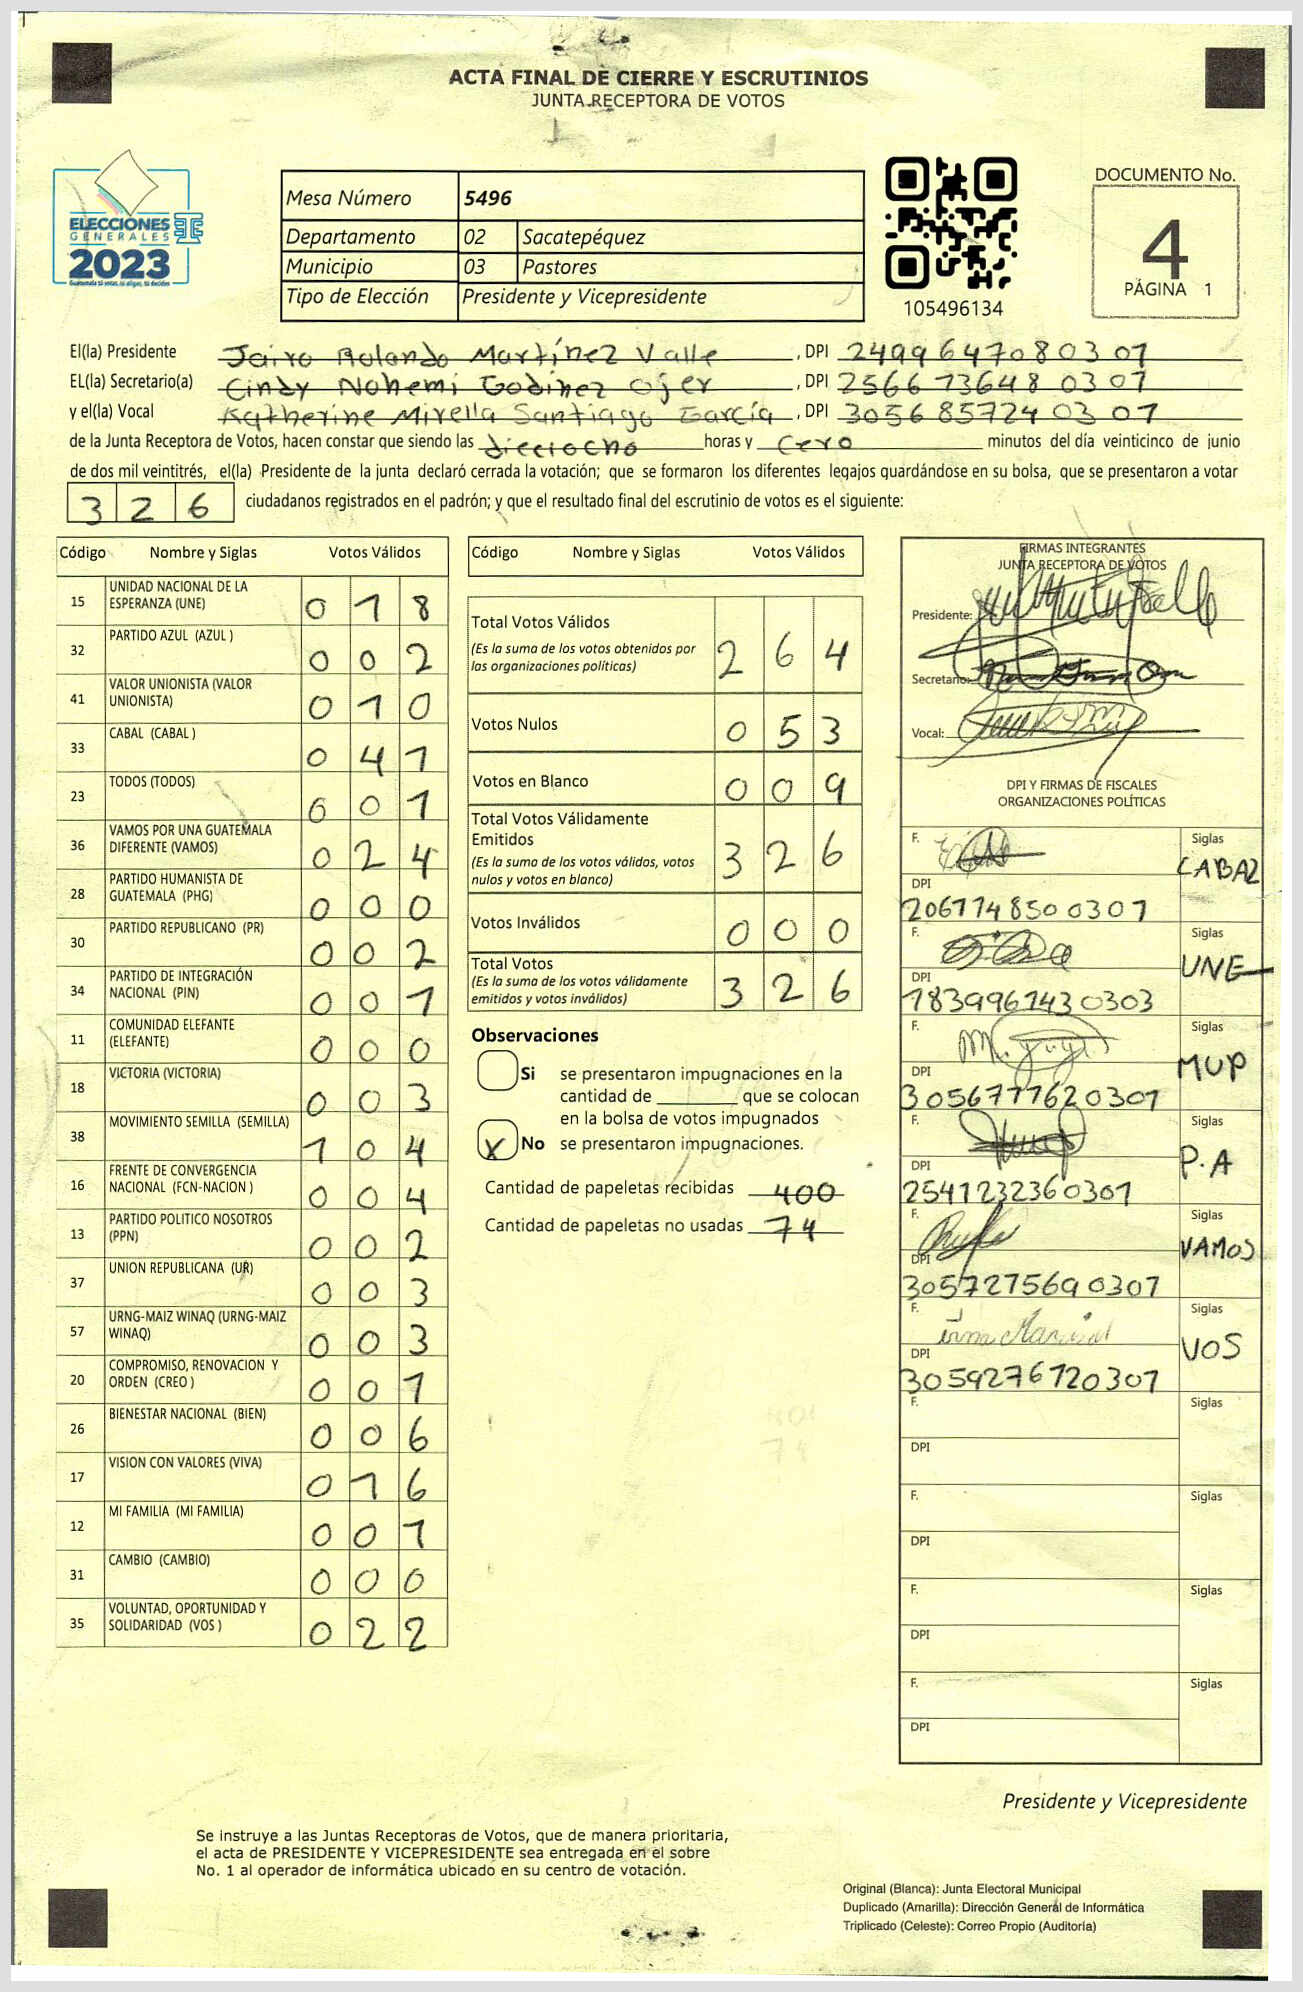 ACTA FINAL DE CIERRE Y ESCRUTINIOS
JUNTA RECEPTORA DE VOTOS
ELECCIONES
GENERALES
2023
Guatemala tú votas, tú eliges, tú decides
Mesa Número 5496
Departamento 02 Sacatepéquez
Municipio 03 Pastores
Tipo de Elección Presidente y Vicepresidente
105496134
DOCUMENTO No.
4
PÁGINA 1
El(la) Presidente Jairo Rolando Martínez Valle, DPI 2499 64708 0301
EL(la) Secretario(a) Cindy Nohemi Godinez Ojer, DPI 2566 73648 0307
y el(la) Vocal Katherine Mirella Santiago García, DPI 3056 85724 0307
de la Junta Receptora de Votos, hacen constar que siendo las dieciocho horas y cero minutos del día veinticinco de junio
de dos mil veintitrés, el(la) Presidente de la junta declaró cerrada la votación; que se formaron los diferentes legajos guardándose en su bolsa, que se presentaron a votar
326 ciudadanos registrados en el padrón; y que el resultado final del escrutinio de votos es el siguiente:
Código Nombre y Siglas Votos Válidos
15 UNIDAD NACIONAL DE LA ESPERANZA (UNE) 018
32 PARTIDO AZUL (AZUL ) 002
41 VALOR UNIONISTA (VALOR UNIONISTA) 010
33 CABAL (CABAL ) 041
23 TODOS (TODOS) 001
36 VAMOS POR UNA GUATEMALA DIFERENTE (VAMOS) 024
28 PARTIDO HUMANISTA DE GUATEMALA (PHG) 000
30 PARTIDO REPUBLICANO (PR) 002
34 PARTIDO DE INTEGRACIÓN NACIONAL (PIN) 001
11 COMUNIDAD ELEFANTE (ELEFANTE) 000
18 VICTORIA (VICTORIA) 003
38 MOVIMIENTO SEMILLA (SEMILLA) 104
16 FRENTE DE CONVERGENCIA NACIONAL (FCN-NACION ) 004
13 PARTIDO POLITICO NOSOTROS (PPN) 002
37 UNION REPUBLICANA (UR) 003
57 URNG-MAIZ WINAQ (URNG-MAIZ WINAQ) 003
20 COMPROMISO, RENOVACION Y ORDEN (CREO ) 001
26 BIENESTAR NACIONAL (BIEN) 006
17 VISION CON VALORES (VIVA) 016
12 MI FAMILIA (MI FAMILIA) 001
31 CAMBIO (CAMBIO) 000
35 VOLUNTAD, OPORTUNIDAD Y SOLIDARIDAD (VOS ) 022
Código Nombre y Siglas Votos Válidos
Total Votos Válidos 264
(Es la suma de los votos obtenidos por
las organizaciones políticas)
Votos Nulos 053
Votos en Blanco 009
Total Votos Válidamente
Emitidos 326
(Es la suma de los votos válidos, votos
nulos y votos en blanco)
Votos Inválidos 000
Total Votos 326
(Es la suma de los votos válidamente
emitidos y votos inválidos)
Observaciones
Si se presentaron impugnaciones en la
cantidad de ________ que se colocan
en la bolsa de votos impugnados
X No se presentaron impugnaciones.
Cantidad de papeletas recibidas 400
Cantidad de papeletas no usadas 74
FIRMAS INTEGRANTES
JUNTA RECEPTORA DE VOTOS
Presidente:
Secretario:
Vocal:
DPI Y FIRMAS DE FISCALES
ORGANIZACIONES POLÍTICAS
F. Siglas CABAL
DPI 206774850 0307
F. Siglas UNE
DPI 1839961430303
F. Siglas MUP
DPI 3056777620301
F. Siglas P.A
DPI 2541232360301
F. Siglas VAMOS
DPI 3057275690307
F. Siglas VOS
DPI 3059276720301
F. Siglas
DPI
F. Siglas
DPI
F. Siglas
DPI
F. Siglas
DPI
Presidente y Vicepresidente
Se instruye a las Juntas Receptoras de Votos, que de manera prioritaria,
el acta de PRESIDENTE Y VICEPRESIDENTE sea entregada en el sobre
No. 1 al operador de informática ubicado en su centro de votación.
Original (Blanca): Junta Electoral Municipal
Duplicado (Amarilla): Dirección General de Informática
Triplicado (Celeste): Correo Propio (Auditoría)